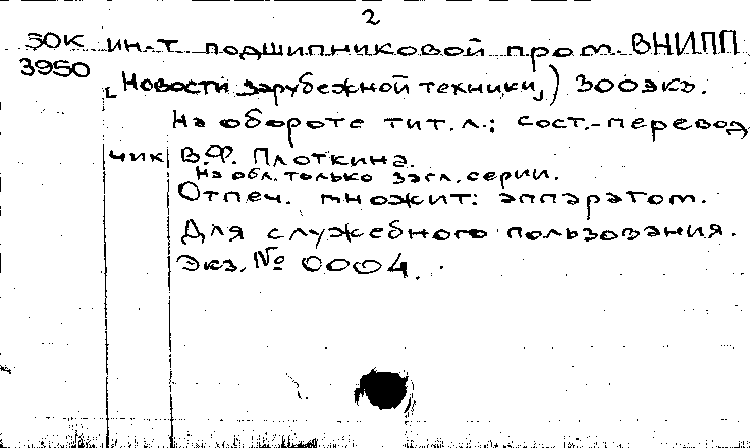 2
ЗОК ин-т подшипниковой пром. ВНИПП
3950
„Новости зарубежной техники„) 300экз.
На обороте тит. л.: сост.-перевод
чик В.Ф. Плоткина.
На обл. только загл. серии.
Отпеч. множит. аппаратом.
Для служебного пользования.
Экз. № 0004.